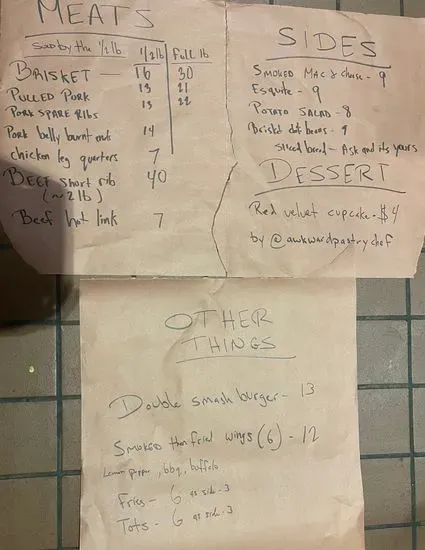 MEATS
Sold by the 1/2 lb 1/2 lb Full lb
BRISKET — 16 30
PULLED PORK 13 21
PORK SPARE RIBS 13 22
Pork belly burnt ends 14
chicken leg quarters 7
BEEF short rib 40
(~2 lb)
Beef hot link 7
SIDES
SMOKED MAC & cheese - 9
Esquite - 9
POTATO SALAD - 8
Brisket dot beans - 9
Sliced bread - Ask and its yours
DESSERT
Red velvet cupcake - $4
by @awkwardpastrychef
OTHER
THINGS
Double smash burger - 13
SMOKED then fried wings (6) - 12
Lemon pepper, bbq, buffalo
Fries - 6 as side - 3
Tots - 6 as side - 3